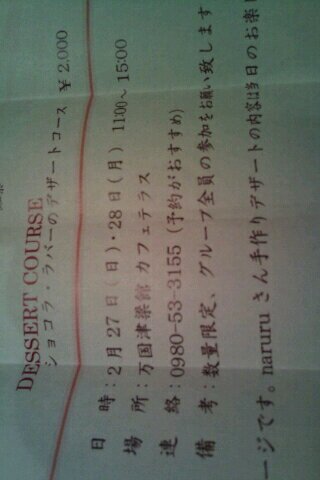 DESSERT COURSE
ショコラ・ラバーのデザートコース ￥2,000
日 時:2月27日(日)・28日(月) 11:00～15:00
場 所:万国津梁館 カフェテラス
連 絡:0980-53-3155(予約がおすすめ)
備 考:数量限定、グループ全員の参加をお願い致します
ージです。naruru さん手作りデザートの内容は当日のお楽